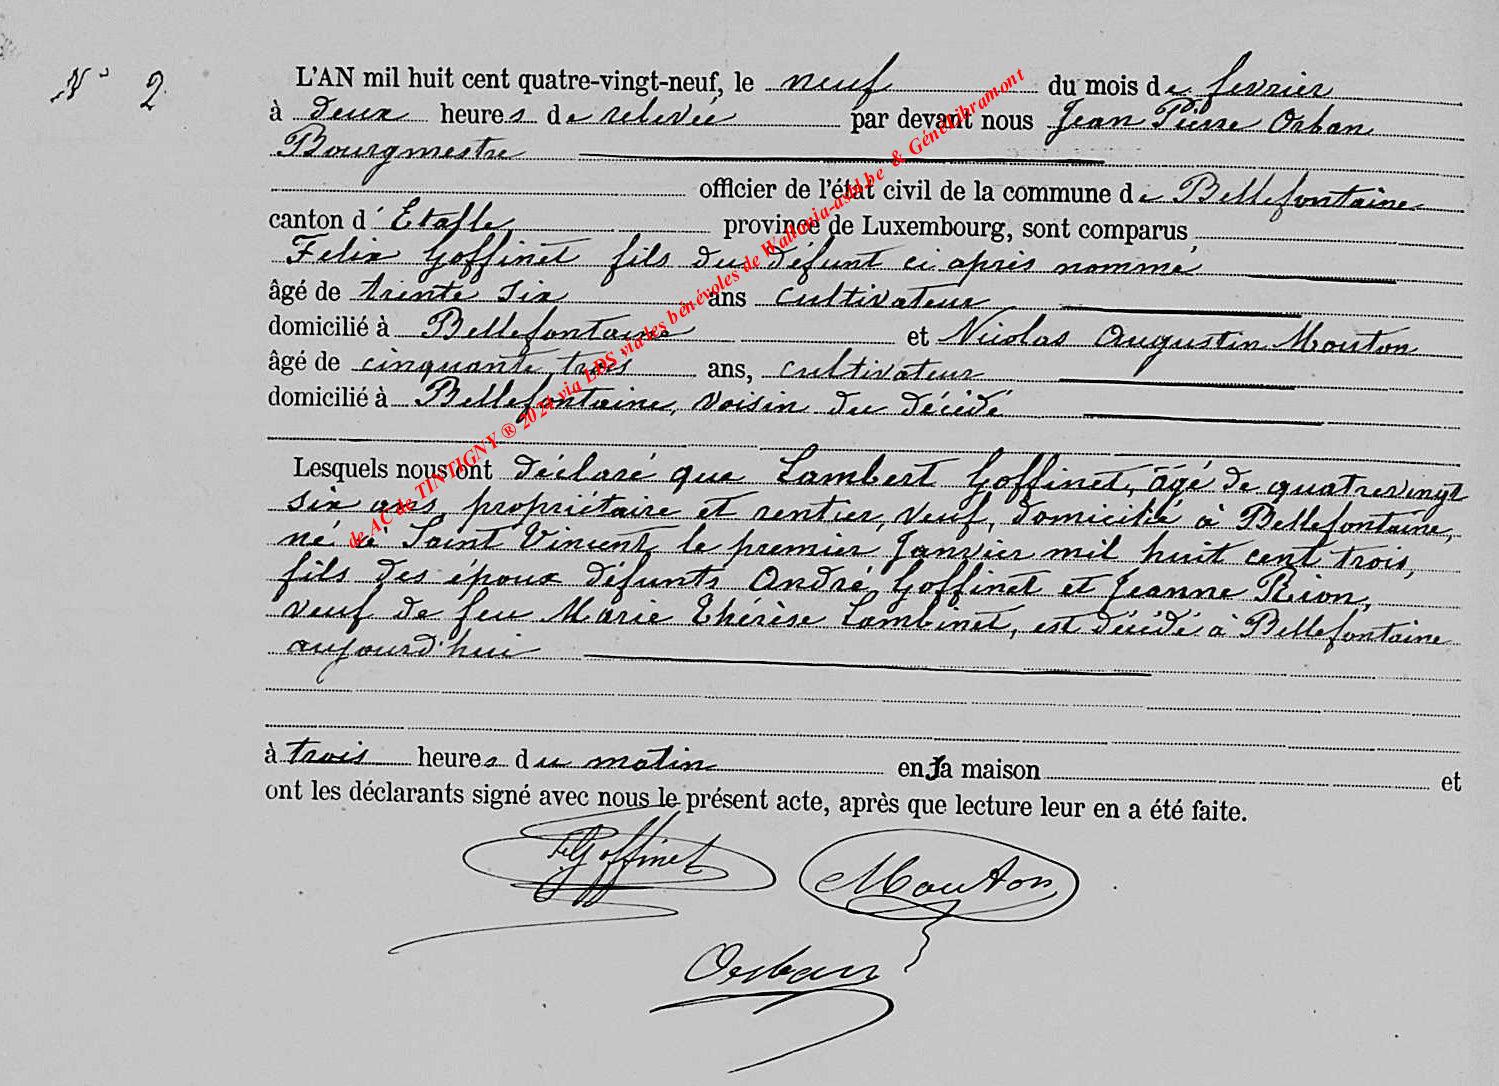 N° 2
L'AN mil huit cent quatre-vingt-neuf, le neuf du mois de fevrier
à deux heures de relevée par devant nous Jean Pierre Orban
Bourgmestre
officier de l'état civil de la commune de Bellefontaine
canton d'Etalle, province de Luxembourg, sont comparus,
Felix Goffinet fils du défunt ci après nommé
âgé de trente six ans cultivateur
domicilié à Bellefontaine et Nicolas Augustin Mouton
âgé de cinquante trois ans, cultivateur
domicilié à Bellefontaine, voisin du décédé
Lesquels nous ont déclaré que Lambert Goffinet, âgé de quatrevingt
six ans, propriétaire et rentier, veuf, domicilié à Bellefontaine,
né à Saint Vincent, le premier Janvier mil huit cent trois,
fils des époux défunts André Goffinet et Jeanne Rion,
veuf de feu Marie Thérèse Lambinet, est décédé à Bellefontaine
aujourd'hui
à trois heures du matin en sa maison et
ont les déclarants signé avec nous le présent acte, après que lecture leur en a été faite.
Goffinet Mouton
Orban
de AC de TINTIGNY ® 2024 via LDS via les bénévoles de Wallonia-asbl.be & Généalibramont